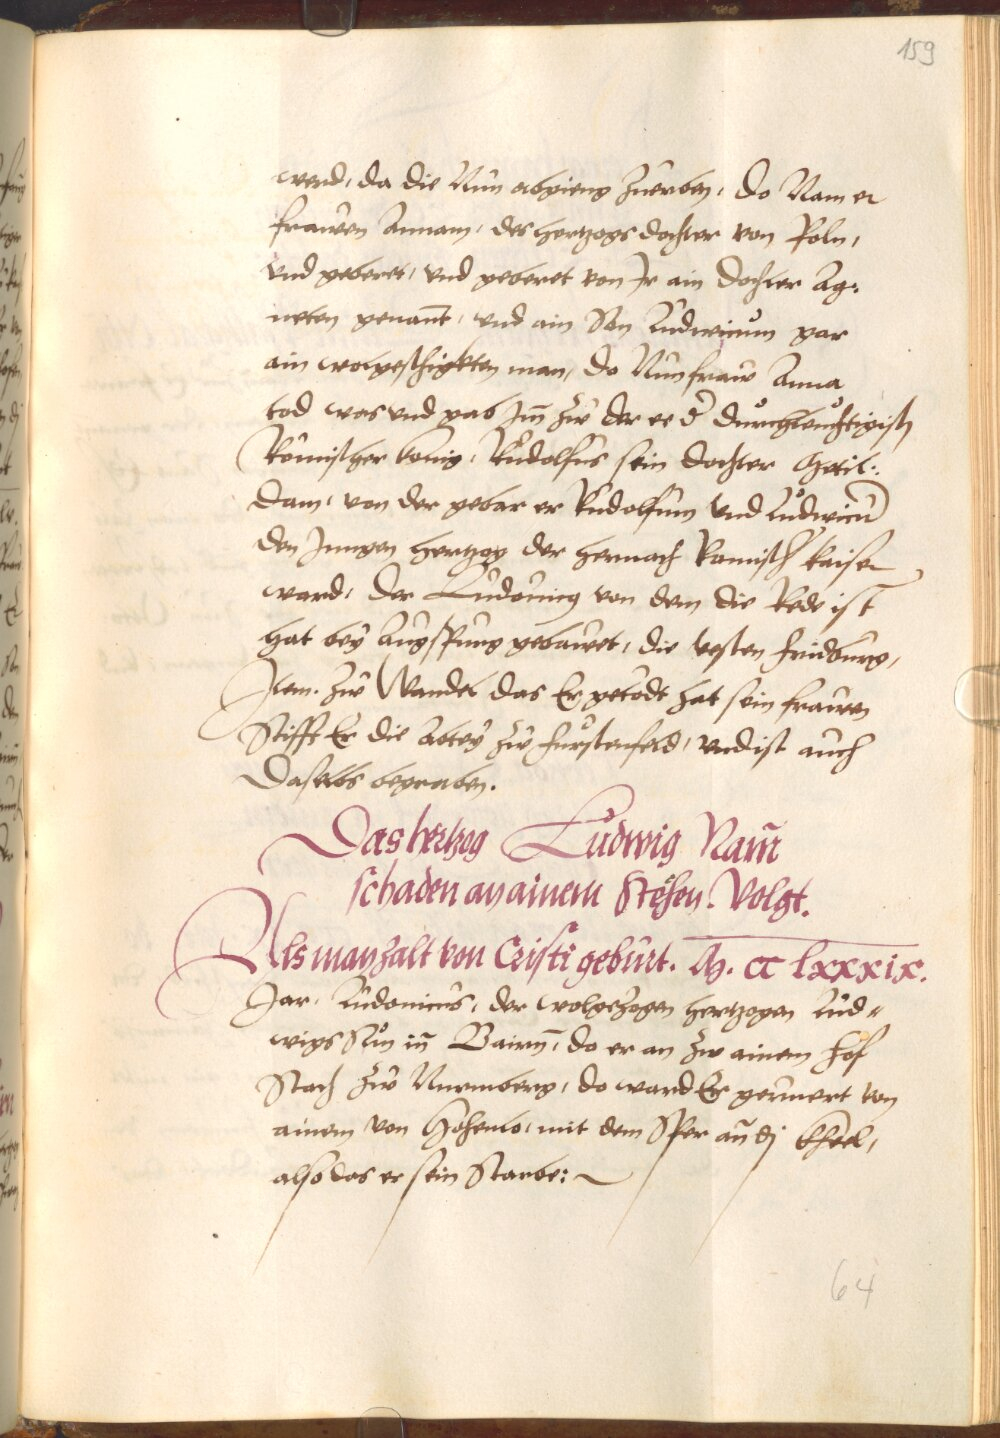 159
werd, da die Nun abgieng Zuerben, do Nam er
frawen Annam, des hertzogs dochter von Poln,
vnd geberet, vnd geberet von Jr ain dochter Ag:
neten genant, vnd ain Son Ludwicum gar
ain wolgeschigkten man, do Nun fraw Anna
tod was vnd gab Jm̃ zw der ee d' durchleuchtigist
Romischer konig, Rudolfus sein dochter Mectil:
dam, von der gebar er Rudolfum vnd Ludwicũ
den Jungen hertzog der hernach Romisch kaiser
ward, Der Ludouing von dem die Rede ist
hat bey Augspurg gebawet, die vesten fridburg,
Jtem. zw Wandel das Er getodt hat sein frawen
Stifft Er die Abtey zw furstenfeld, vnd ist auch
Daselbs begraben.
Das hertzog Ludwig Nam̃
schaden an ainem Stechen. Volgt.
Als man zalt von Cristi geburt. M. cc lxxxix.
Jar, Ludouicus, der wolgezogen hertzogen Lud=
wigs Sun in̄ Bairn̄, do er an zw ainem hof
Stach zw Nurmberg, do ward Er geruert von
ainem von Hohenlo, mit dem Sper an̄ dj kheel,
also das er sein Starbe:
64